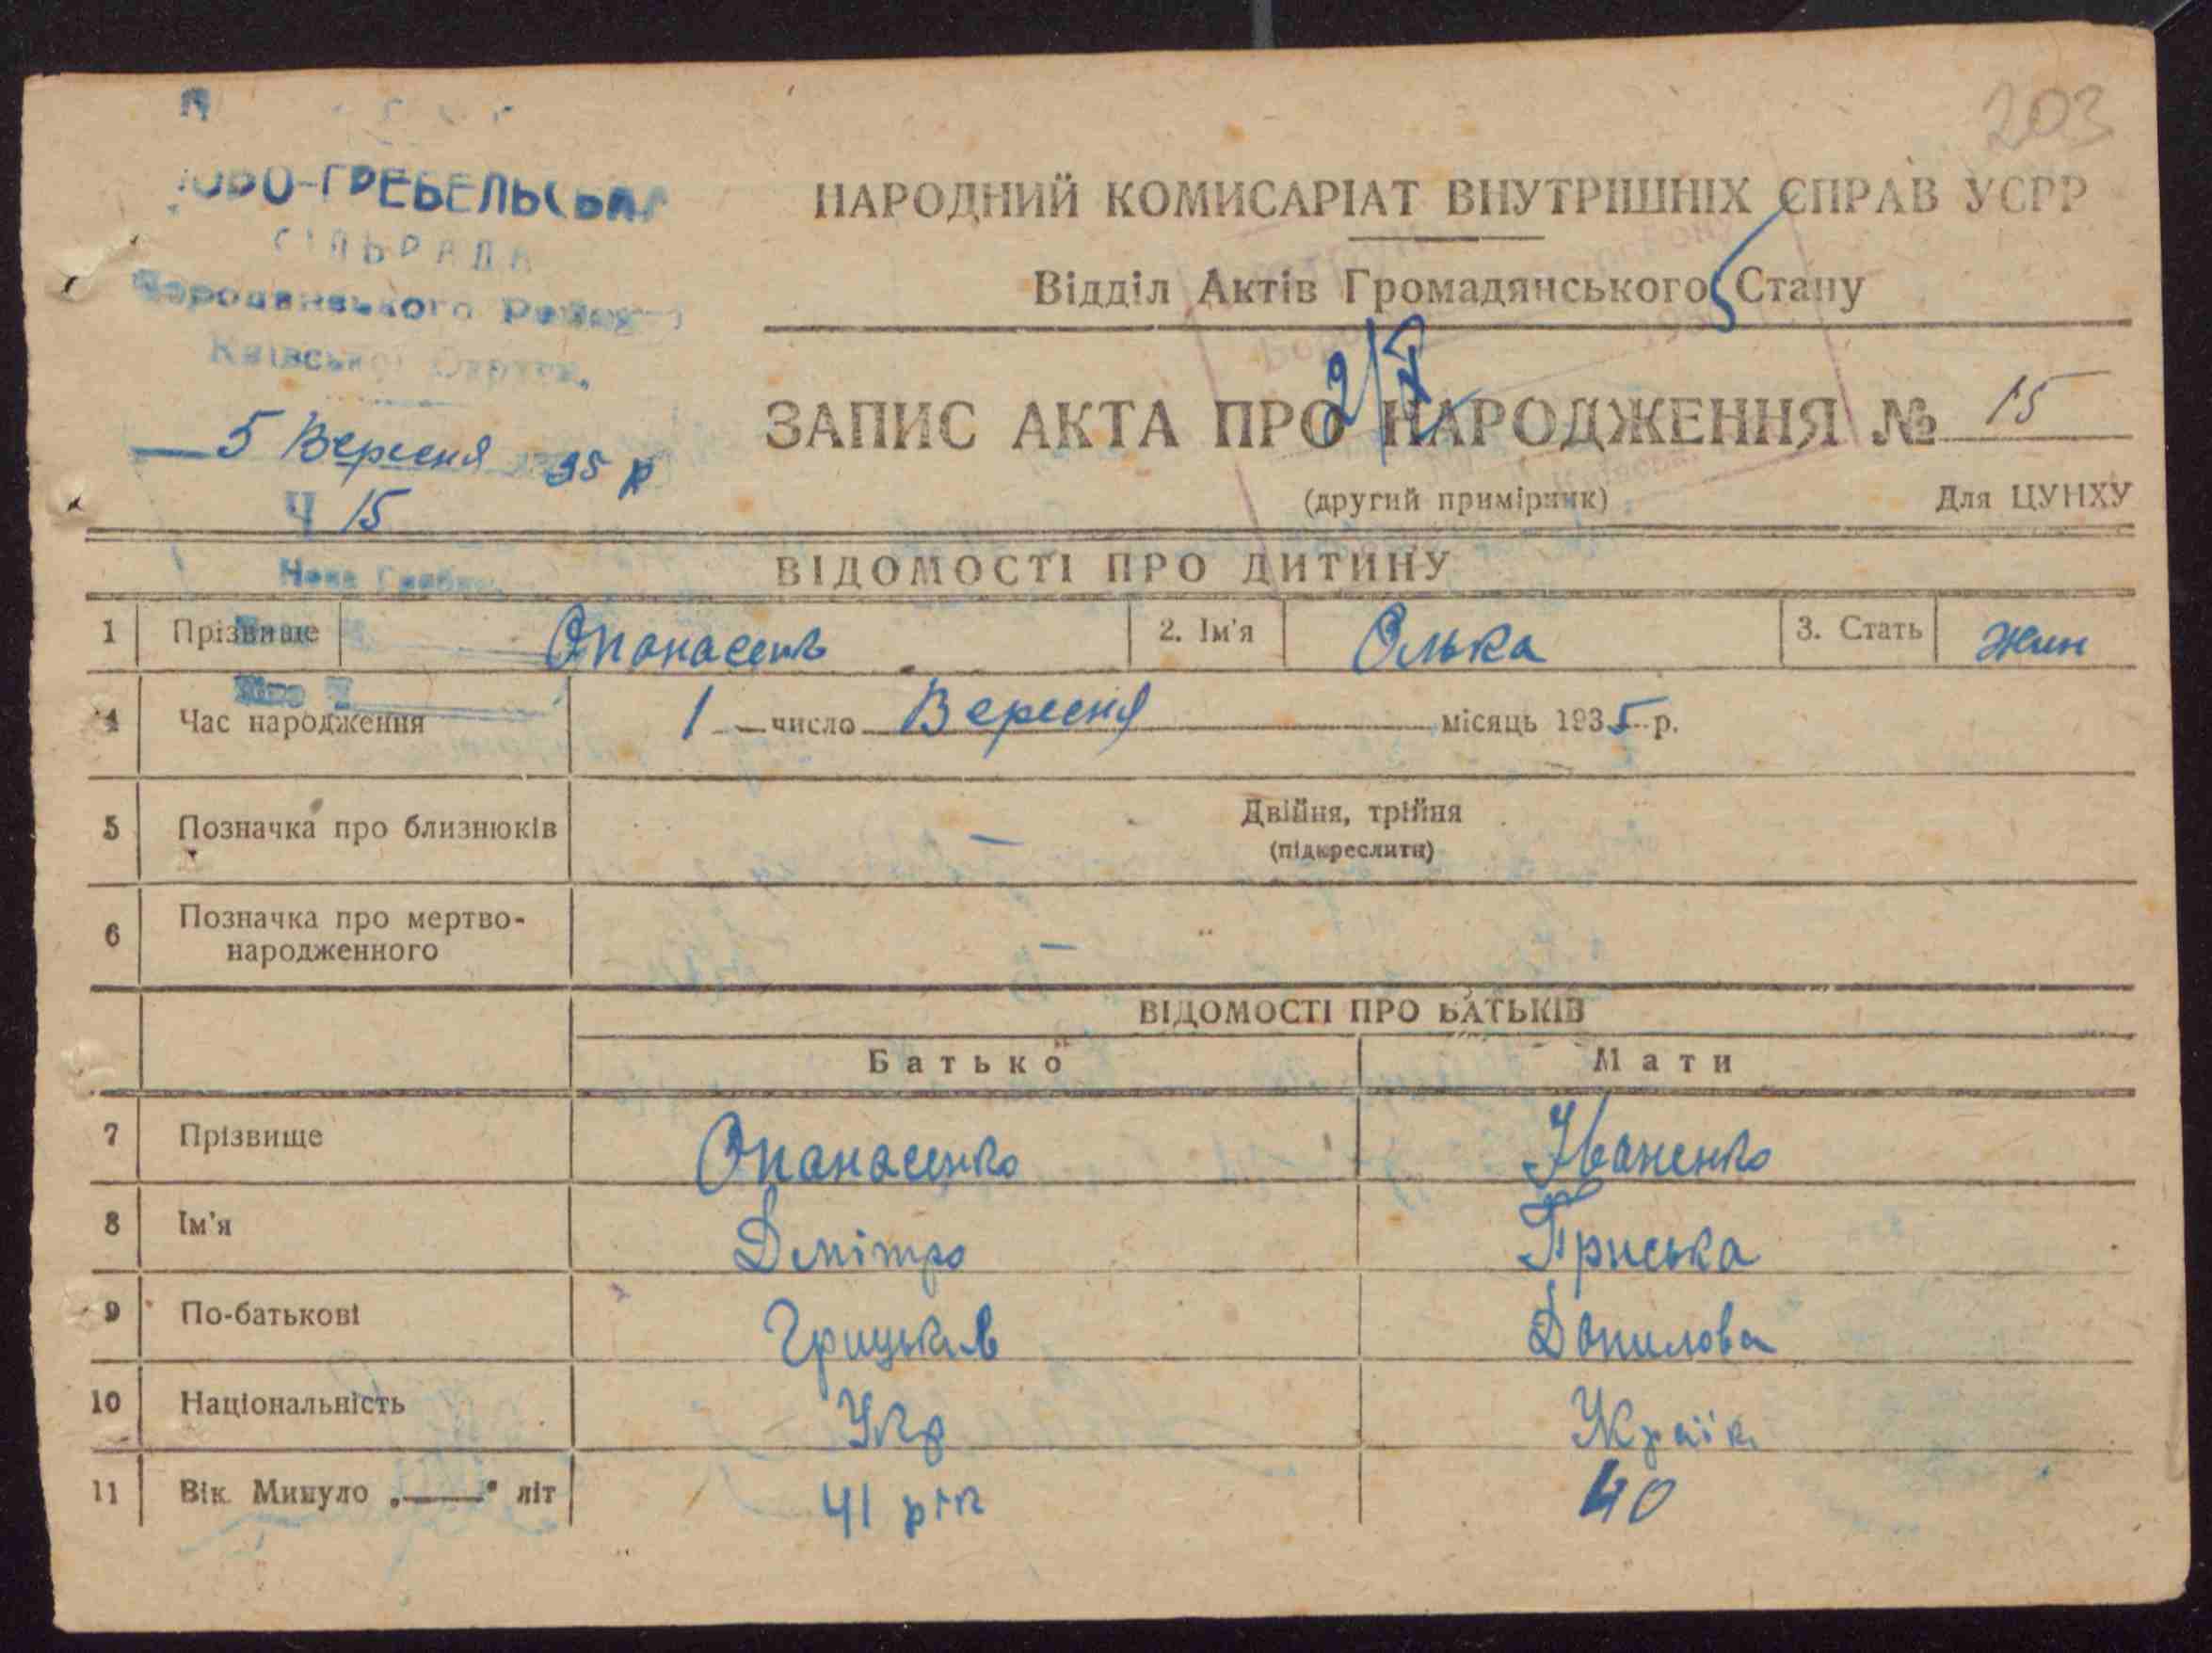 203
ОВО-ГРЕБЕЛЬСЬКА
СІЛЬРАДА
Бородянського Району
Київської Округи.
5 Вересня 35 р
Ч 15
НАРОДНИЙ КОМИСАРІАТ ВНУТРІШНІХ СПРАВ УСРР
Відділ Актів Громадянського Стану
ЗАПИС АКТА ПРО НАРОДЖЕННЯ № 15
(другий примірник) Для ЦУНХУ
ВІДОМОСТІ ПРО ДИТИНУ
1 Прізвище Опанасенко 2. Ім'я Олька 3. Стать жин
4 Час народження 1 число Вересня місяць 1935 р.
5 Позначка про близнюків – Двійня, трійня
(підкреслити)
6 Позначка про мертво-
народженного –
ВІДОМОСТІ ПРО БАТЬКІВ
Батько Мати
7 Прізвище Опанасенко Іваненко
8 Ім'я Дмітро Приська
9 По-батькові Грицьків Данилова
10 Національність Укр Україн
11 Вік. Минуло „——" літ 41 рік 40